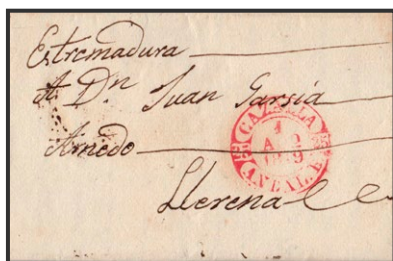 Estremadura
A Dn Juan Garsia
Arnedo
Llerena
CAZALLA
1